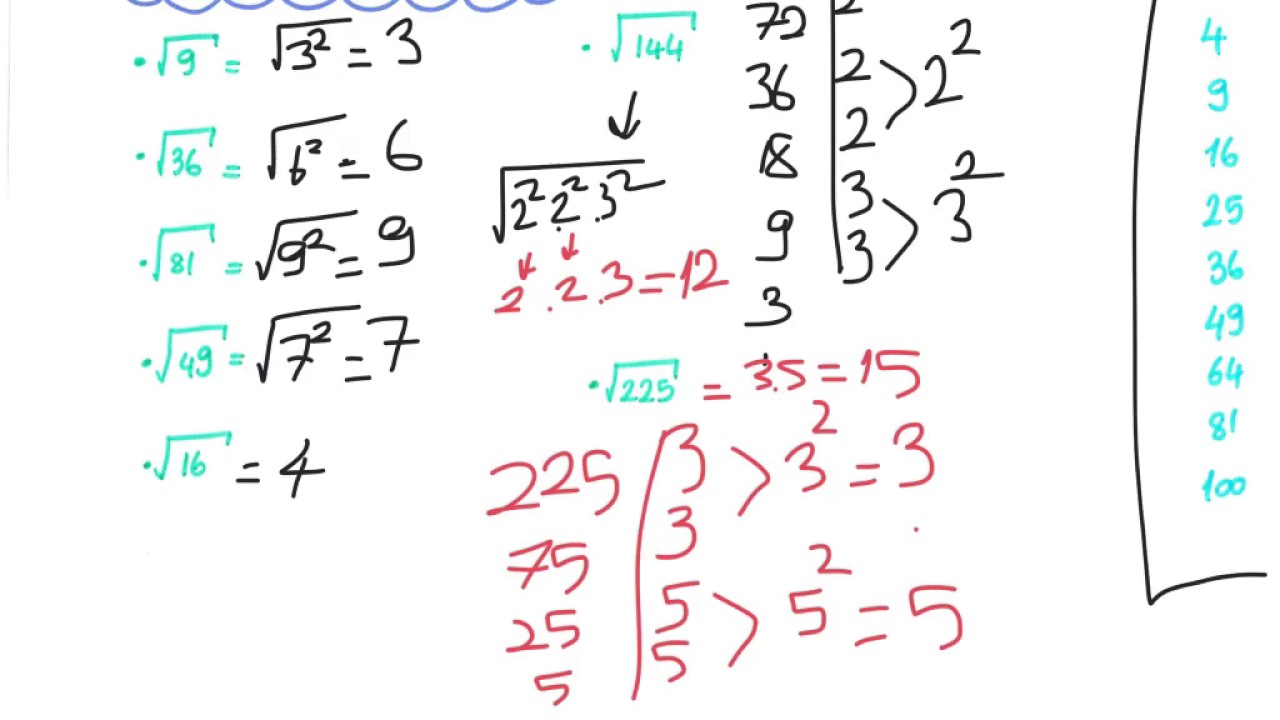 ·√9 = √3² = 3
·√36 = √6² = 6
·√81 = √9² = 9
·√49 = √7² = 7
·√16 = 4
·√144
√2².2².3²
2.2.3=12
72 | 2
36 | 2 > 2²
18 | 2
9 | 3 > 3²
3 | 3
·√225 = 3.5=15
225 | 3 > 3² = 3
75 | 3
25 | 5 > 5² = 5
5 | 5
4
9
16
25
36
49
64
81
100